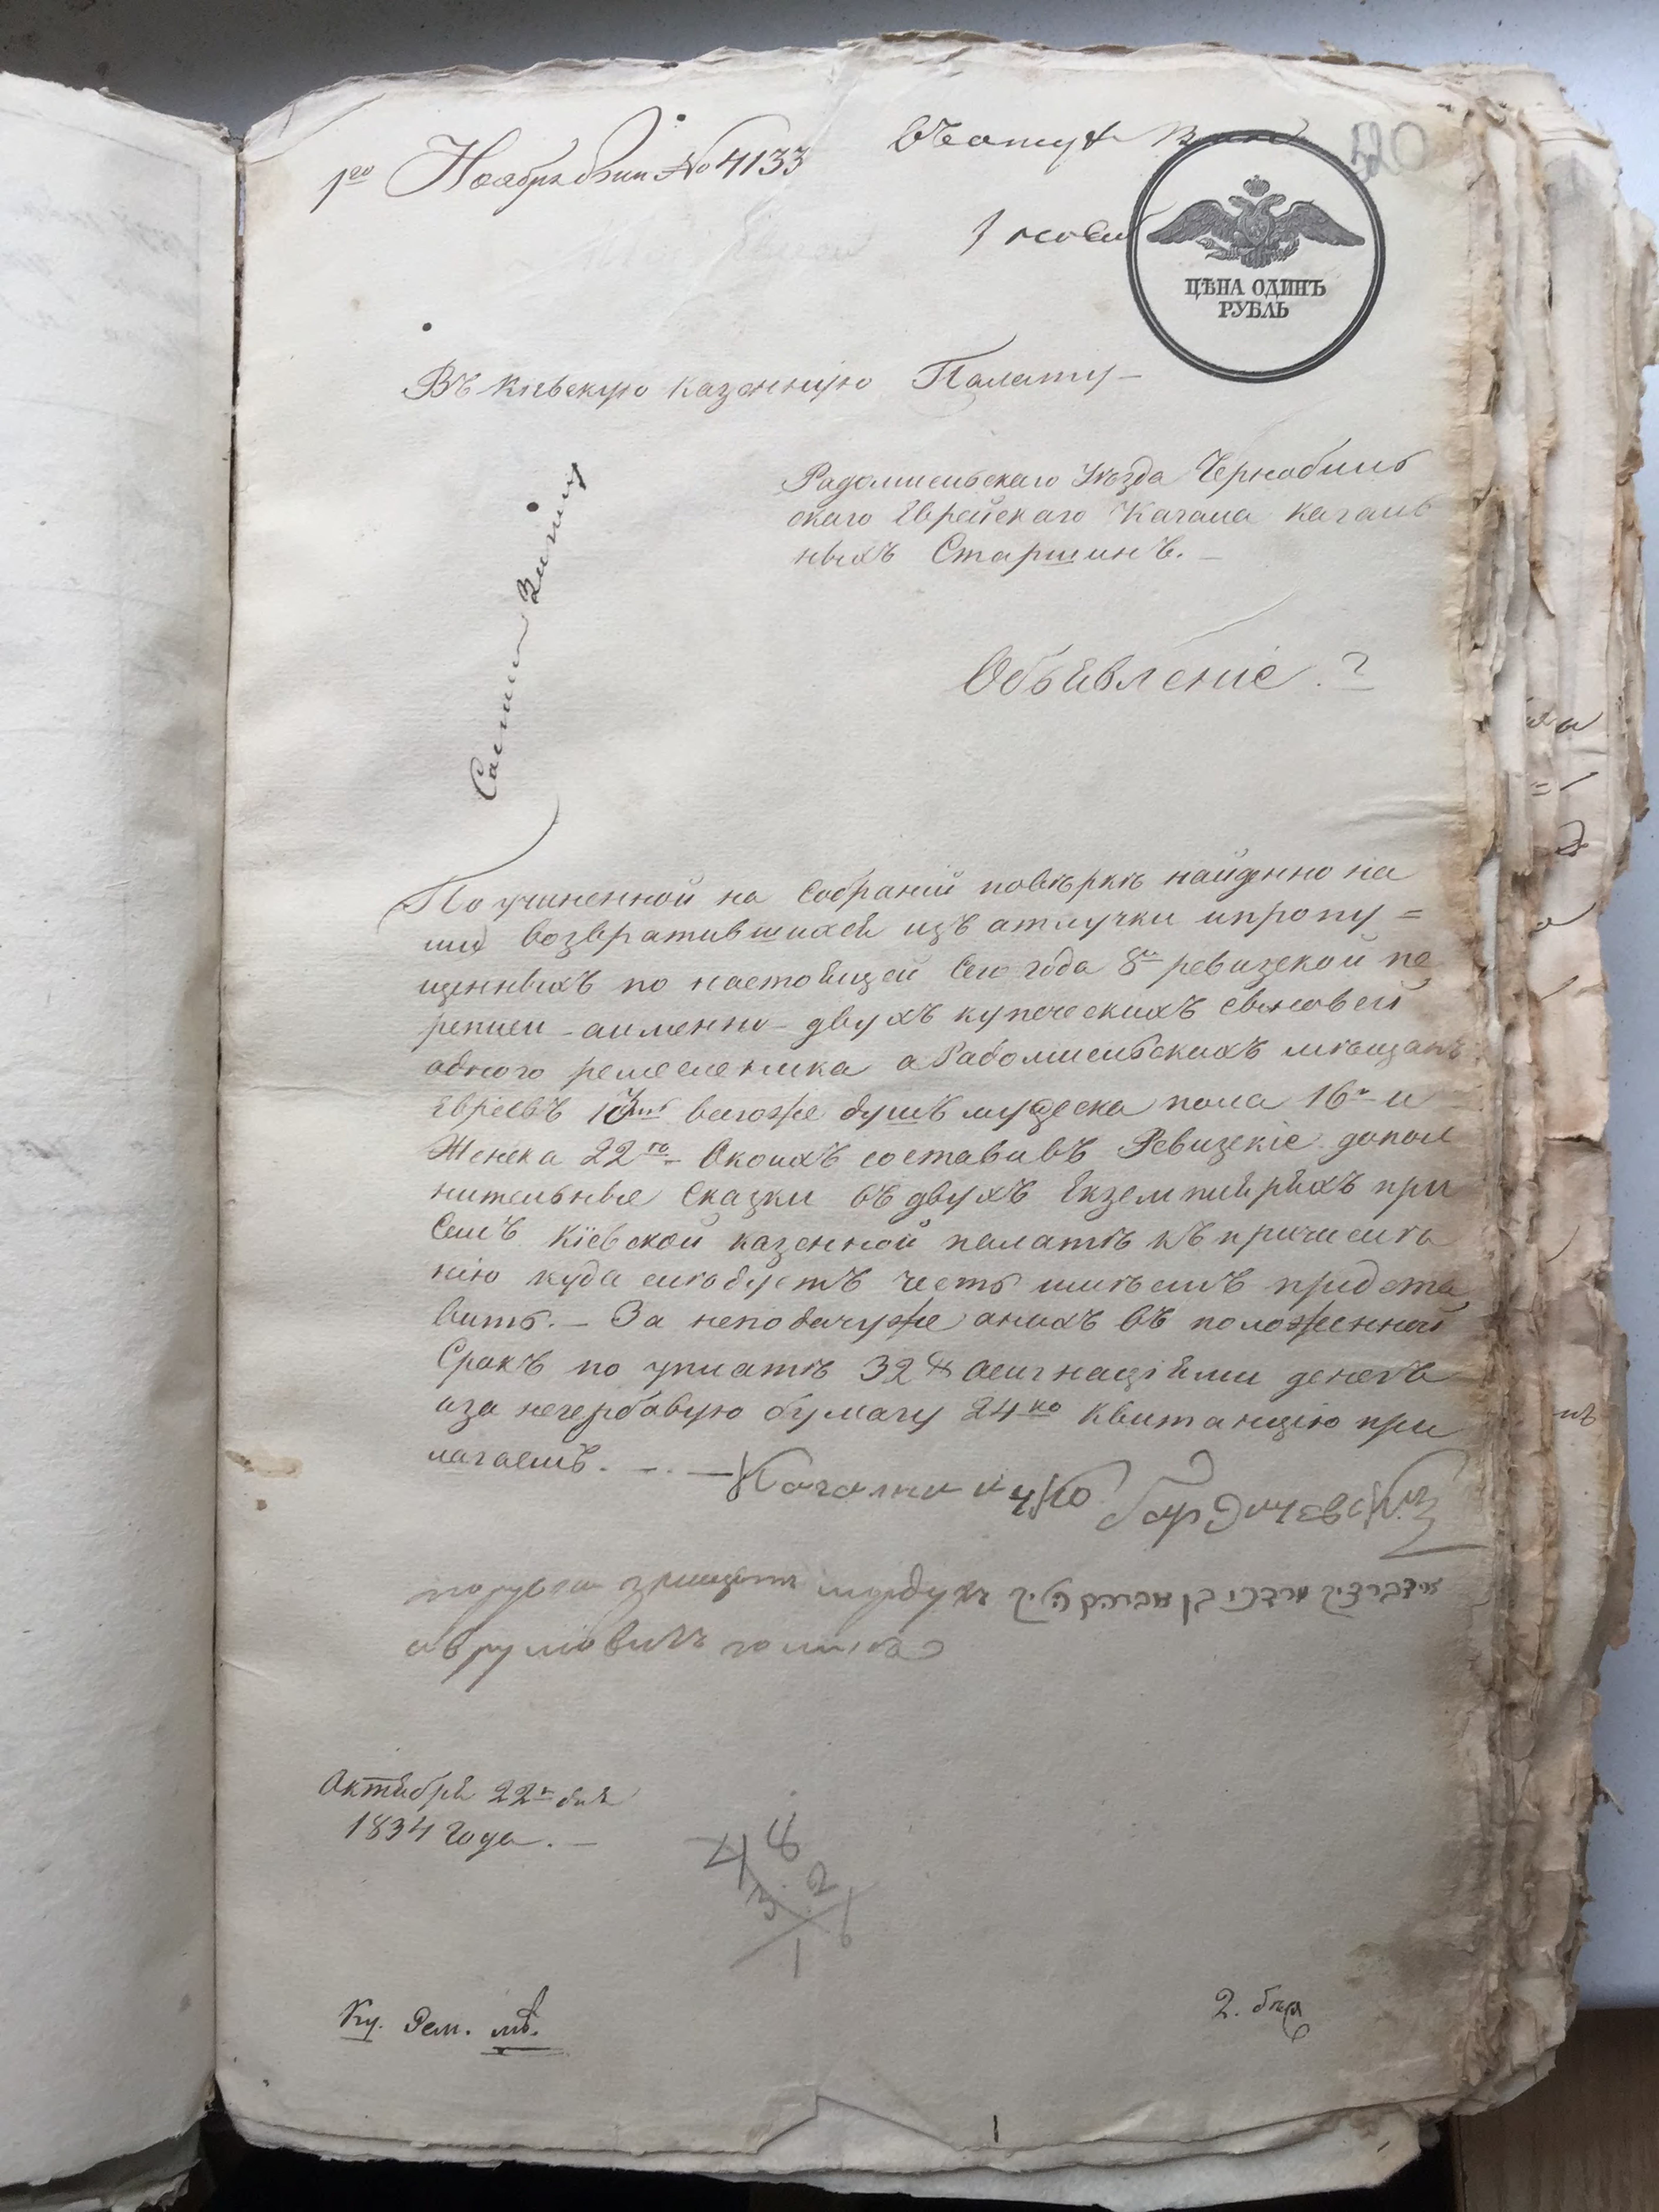 1го Ноября № 4133
20
ЦѢНА ОДИНЪ
РУБЛЬ
Въ Кіевскую Казенную Палату —
Радомисльскаго Уѣзда Чернобиль
скаго Еврейскаго Кагала кагаль
ныхъ Старшинъ. —
Объявленіе
По учиненной на Собраній повѣркѣ найденно на
ми возвратившихся изъ атлучки ипропу=
щенныхъ по настоящей Сего года 8й ревизской пе
реписи — аименно — двухъ купеческихъ сыновей
адного ремесленика а Радомисльскихъ мѣщанъ
Евреевъ всегоже душъ мужеска пола 16ъ и
Женска 22го — Окоихъ составивъ Ревизскіе допол
нительные Сказки въ двухъ Екземпляряхъ при
Семъ Кіевской казенной палатѣ къ причисле
нію куда слѣдуетъ честь имѣемъ предста
вить. — За неподачуже аныхъ въ положенный
Сракъ по уплатѣ 32 асигнаціями денегъ
иза негербовую бумагу 24ко Квитанцію при
лагаемъ. —
מרדכי בן אברהם
Октября 22го дня
1834 Года. —
48
3.2
16
Ку. Рем. мѣ.
2.